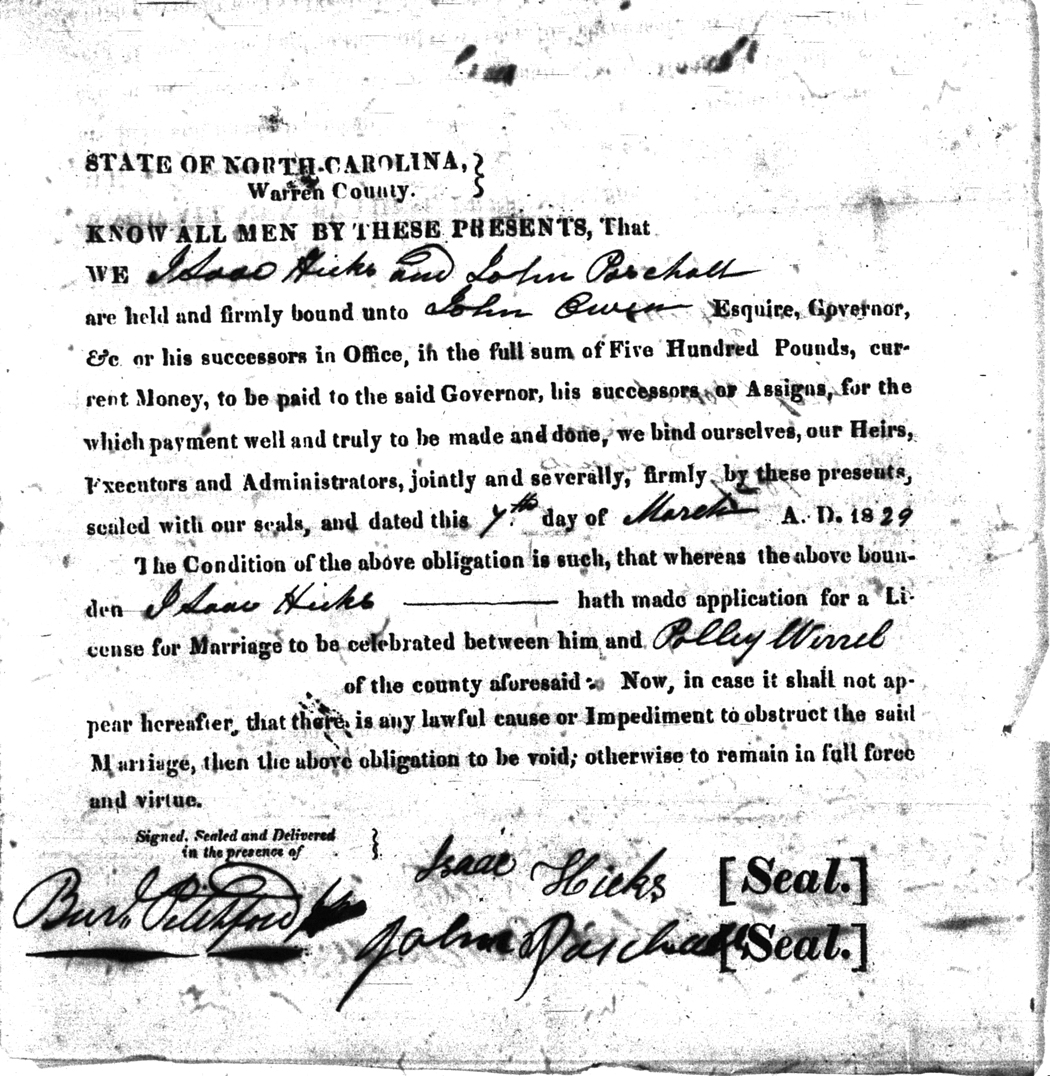 STATE OF NORTH-CAROLINA,
Warren County.
KNOW ALL MEN BY THESE PRESENTS, That
WE Isaac Hicks and John Paschall
are held and firmly bound unto John Owen Esquire, Governor,
&c or his successors in Office, in the full sum of Five Hundred Pounds, cur-
rent Money, to be paid to the said Governor, his successors, or Assigns, for the
which payment well and truly to be made and done, we bind ourselves, our Heirs,
Executors and Administrators, jointly and severally, firmly by these presents,
sealed with our seals, and dated this 7th day of March A. D. 1829
The Condition of the above obligation is such, that whereas the above boun-
den Isaac Hicks hath made application for a Li-
cense for Marriage to be celebrated between him and Polley Worrel
of the county aforesaid: Now, in case it shall not ap-
pear hereafter, that there is any lawful cause or Impediment to obstruct the said
Marriage, then the above obligation to be void; otherwise to remain in full force
and virtue.
Signed, Sealed and Delivered
in the presence of
Isaac Hicks [Seal.]
Burl Pitchford
John Paschall [Seal.]